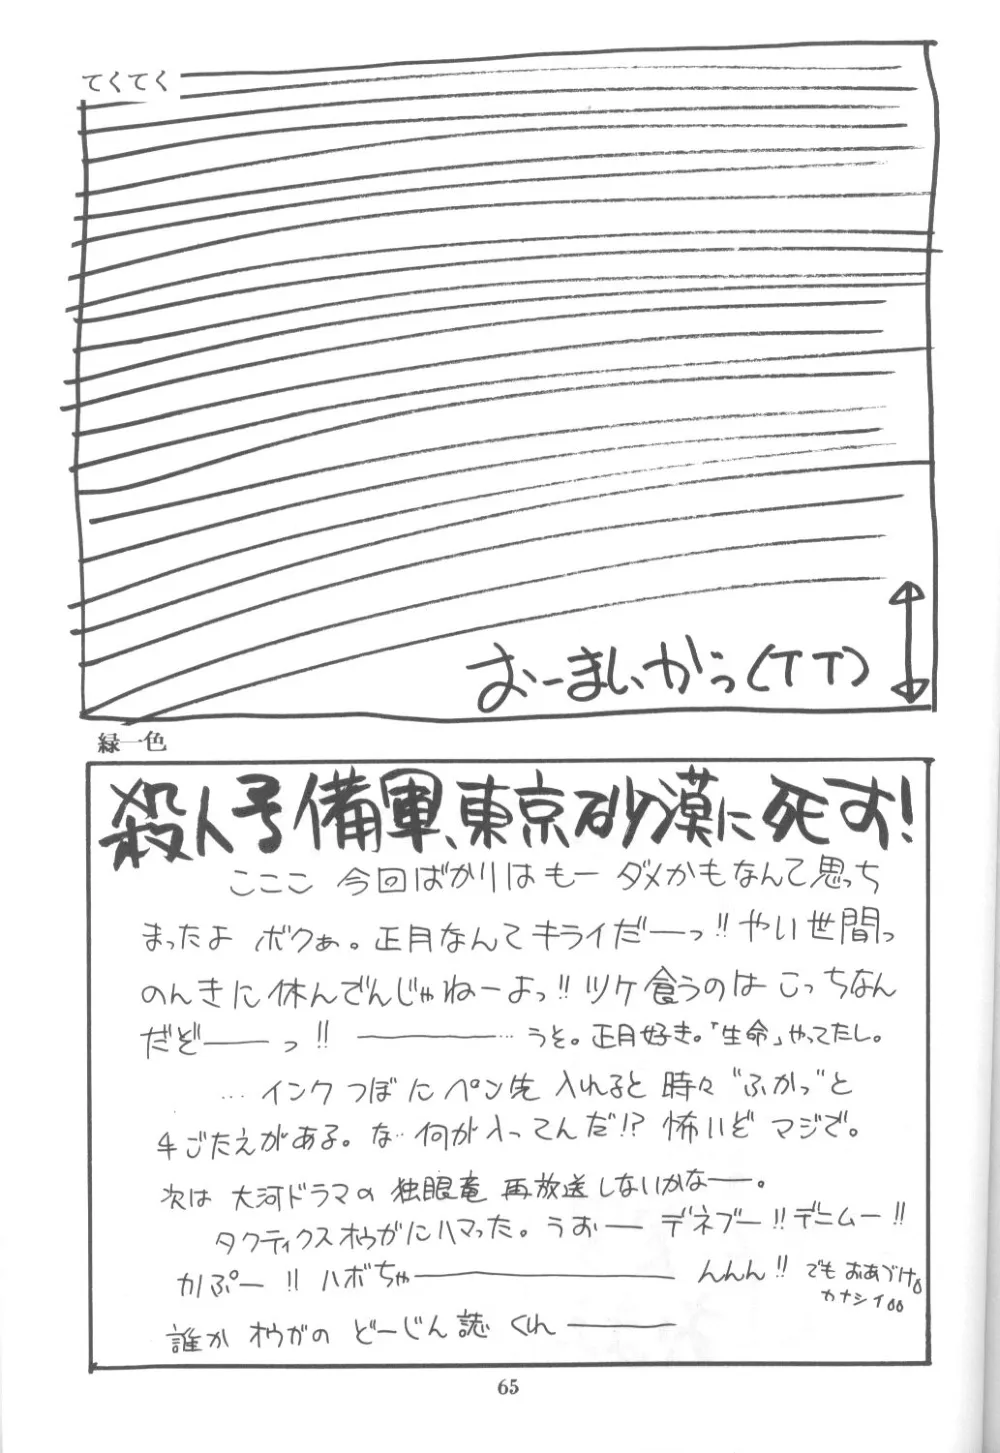 てくてく
おーまいがっ(TT)
緑一色
殺人号備軍、東京砂漠に死す!
こここ 今回ばかりはもー ダメかもなんて思っち
まったよ ボクぁ。正月なんてキライだーっ!!やい世間っ
のんきに休んでんじゃねーよっ!!ツケ食うのは こっちなん
だぞ——っ!! ————…うそ。正月好き。「生命」やってたし。
…インクつぼにペン先 入れると 時々 “ふかっ”と
手ごたえがある。な…何が入ってんだ!? 怖いぞ マジで。
次は 大河ドラマの 独眼竜 再放送しないかなー。
タクティクスオウガにハマった。うおー デネブー!!デニムー!!
かぷー!! ハボちゃ————んんん!! でも おあづけ。
カナシイ。。
誰か オウガの どーじん誌 くれ———
65